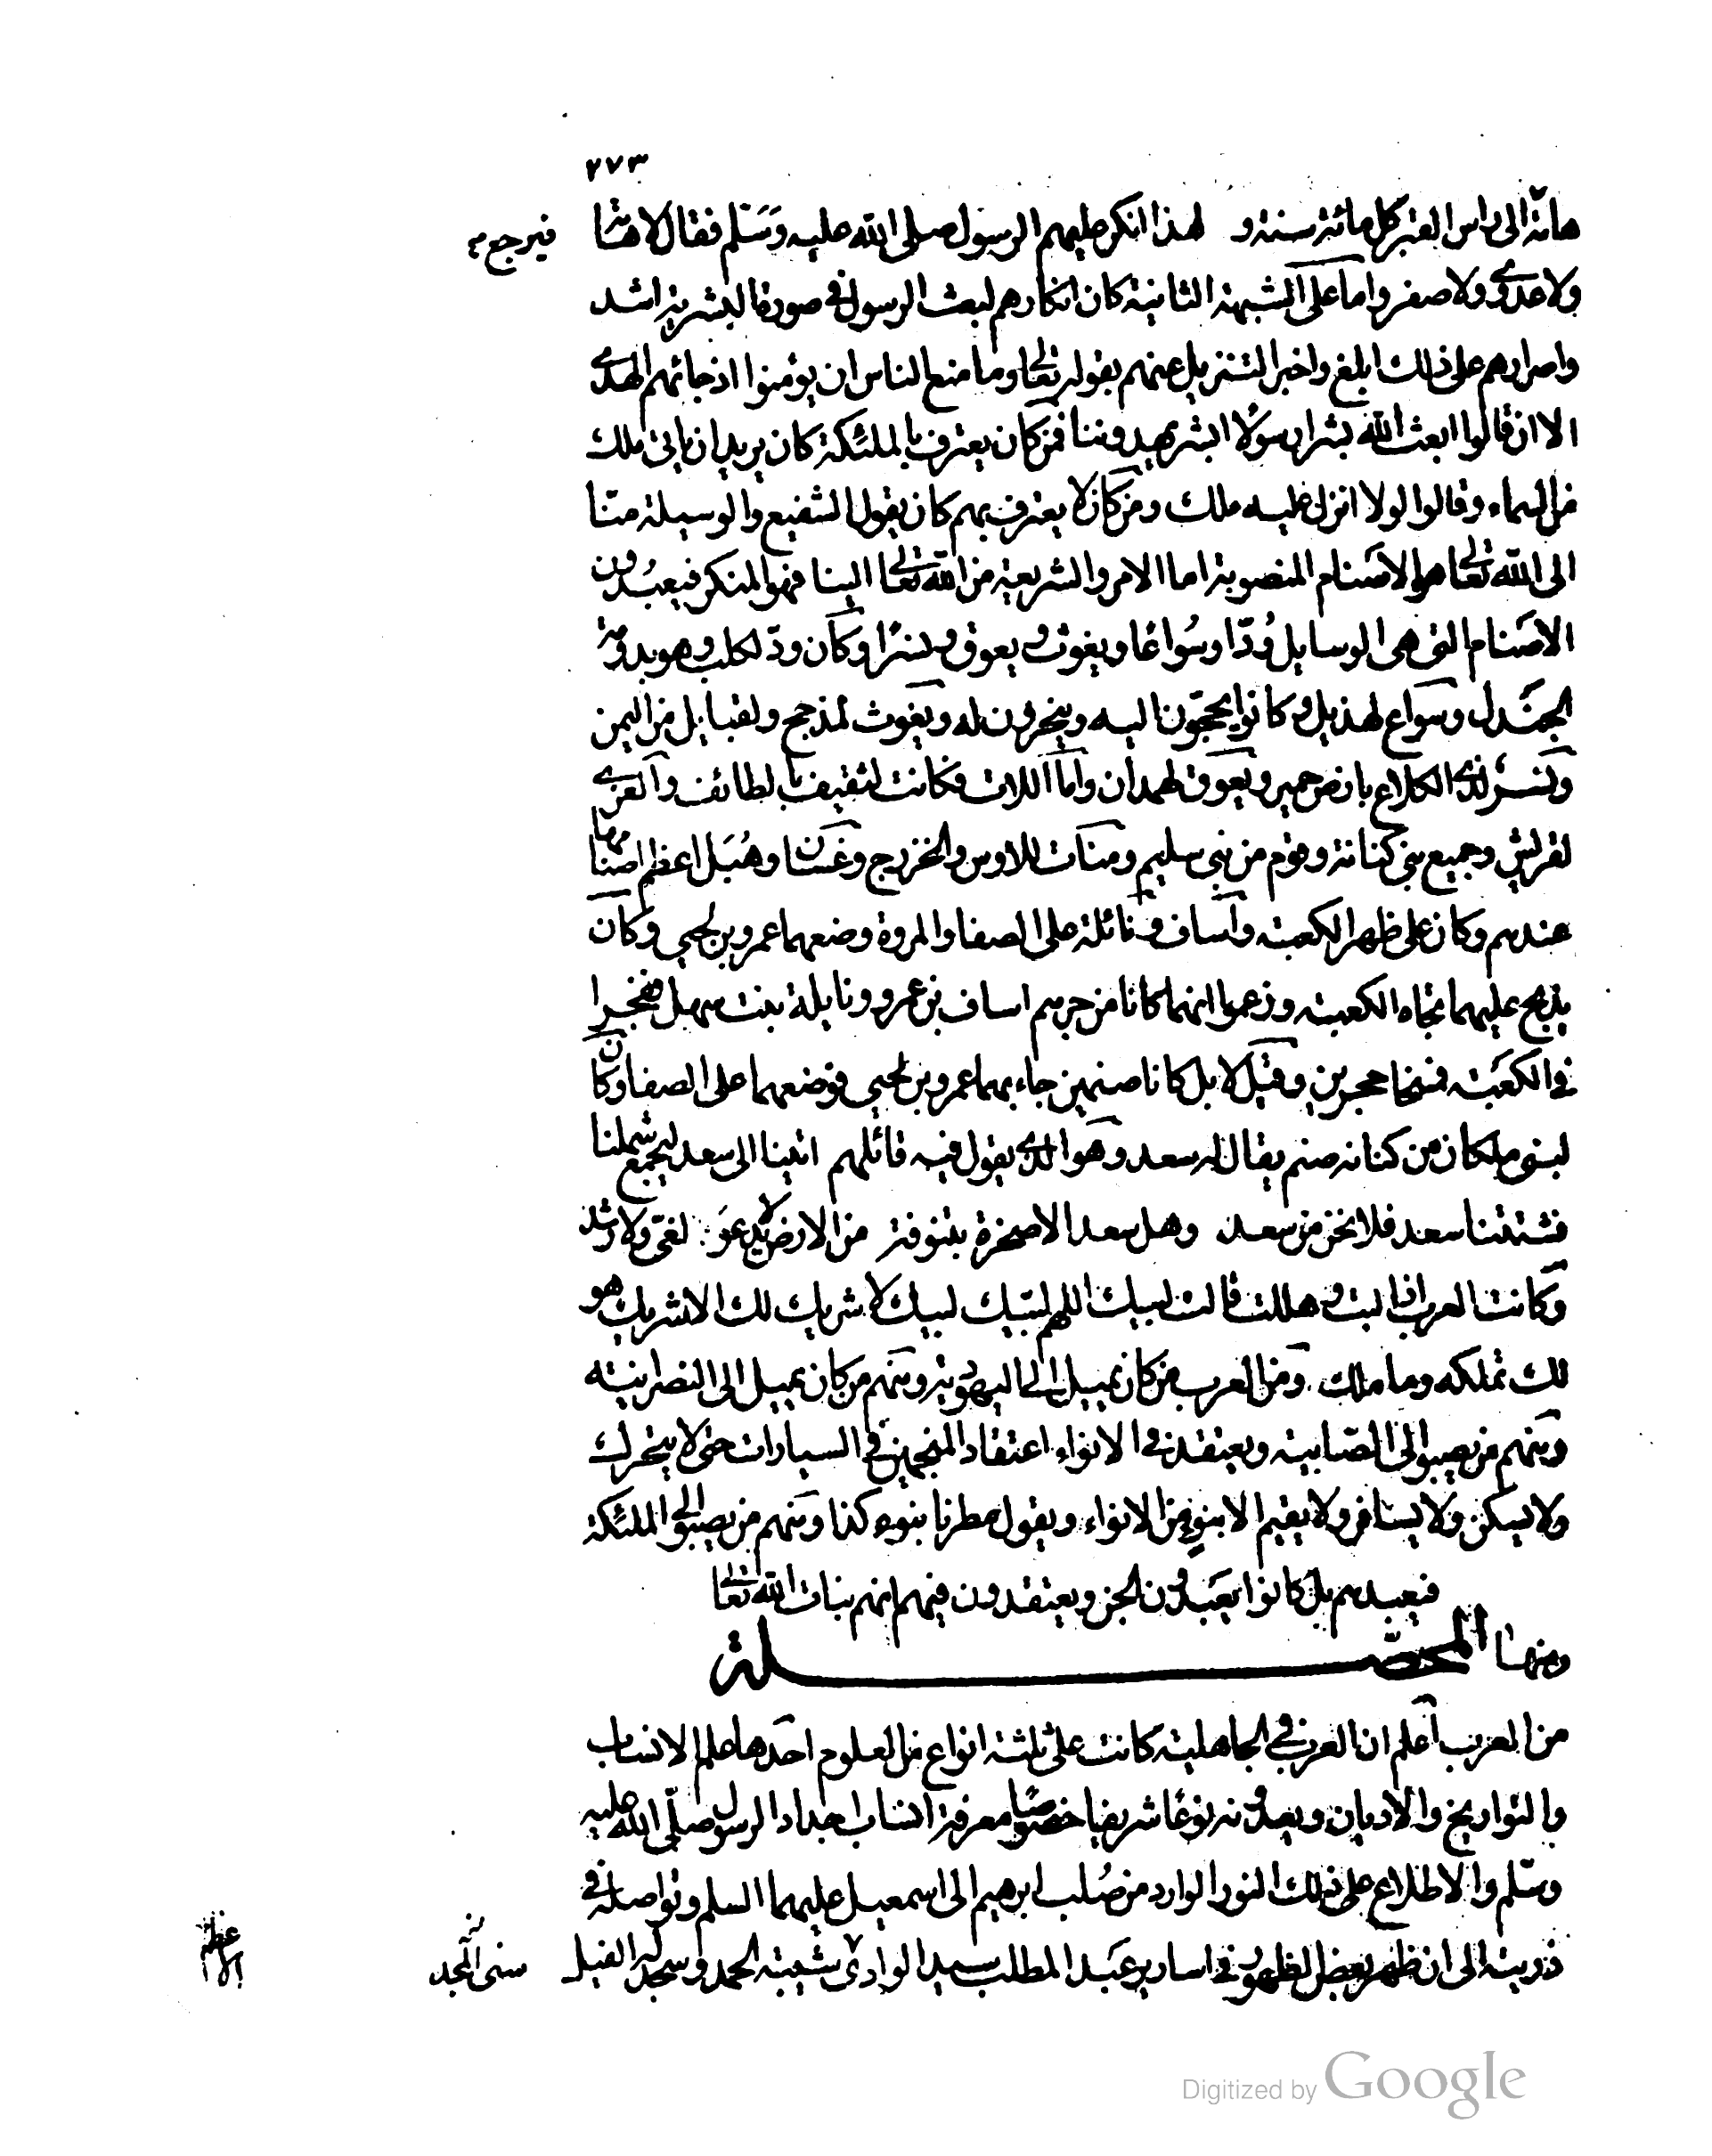 ٢٧٣
هامّة الى راس القبر كل مائة سنة و لهذا انكر عليهم الرسول صلى الله عليه وَسَلم فقال لا هامّا
فيرجع
ولا عدوى ولا صفر واما على الشبهة الثانية كان انكارهم لبعث الرسول في صورة البشرية اشد
واصرارهم على ذلك ابلغ واخبر التنزيل عنهم بقوله تعالى وما منع الناس ان يؤمنوا اذ جائهم الهدى
الا ان قالوا ابعث الله بشرا رسولا ابشر يهدوننا فمن كان يعترف بالملئكة كان يريد ان ياتى ملك
من السماء وقالوا لولا انزل عليه ملك ومن كان لا يعترف بهم كان يقول الشفيع والوسيلة منّا
الى الله تعالى هو الاصنام المنصوبة اما الامر والشريعة من الله تعالى الينا فهو المنكر فيعبُدون
الاصنام التى هى الوسايل وُدّا وسُواعًا ويغوث ويعوق ونسرًا وكان ودّ لكلب وهو بدومة
الجَندل وسَواع لهذيل وكانوا يحجّون اليه وينحرون له ويغوث لمذحج ولقبايل من اليمن
ونسر لذى الكلاع بارض حمير ويعوق لهمدان واما اللات فكانت لثقيف بالطائف والعزى
لقريش وجميع بنى كنانة وقوم من بنى سليم ومنات للاوس والخزرج وغسّان وهُبَل اعظم اصنامها
عندهم وكان على ظهر الكعبة واساف ونائلة على الصفا والمروة وضعهما عمرو بن لحيى وكان
يذبح عليهما تجاه الكعبة وزعموا انهما كانا من جرهم اساف بن عمرو ونايلة بنت سهل ففجرا
فى الكعبة فمسخا حجرين وقيل لا بل كانا صنمين جاء بهما عمرو بن لحيى فوضعهما على الصفا وكان
لبنى ملكان من كنانه صنم يقال له سعد وهو الذى يقول فيه قائلهم اتينا الى سعد ليجمع شملنا
فشتتنا سعد فلا نحن من سعد وهل سعد الا صخرة بتنوفة من الارض لا يدعو لغىّ ولا رشد
وكانت العرب اذا لبت وهللت قالت لبيك اللهم لبّيك لبيك لا شريك لك الا شريك هو
لك تملكه وما ملك ومن العرب من كان يميل الى اليهودية ومنهم من كان يميل الى النصرانية
ومنهم من يصبو الى الصّابية ويعتقد فى الانواء اعتقاد المنجمين فى السيارات حتى لا يتحرك
ولا يسكن ولا يسافر ولا يقيم الا بنوءٍ من الانواء ويقول مطرنا بنوء كذا ومنهم من يصبو الى الملئكة
فيعبدهم بل كانوا يعبدون الجن ويعتقدون فيهم انهم بنات الله تعالى
ومنها المحصّلة
من العرب اعلم ان العرب فى الجاهلية كانت على ثلثة انواع من العلوم احدها علم الانساب
والتواريخ والاديان ويعدونه نوعًا شريفا خصوصًا معرفة انساب اجداد الرسول صلّى الله عليه
وسّلم والاطلاع على ذلك النور الوارد من صُلب ابرهيم الى اسمعيل عليهما السلم وتواصله فى
ذريته الى ان ظهر بعض الظهور فى اسارير عَبد المطلب سيد الوادى شيبة الحمد وسجد له الفيل
الاعظم
Digitized by Google